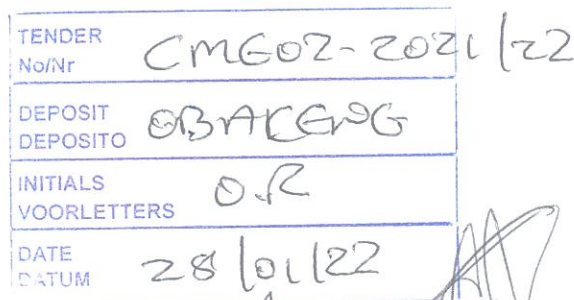 TENDER
No/Nr CMG02-2021/22
DEPOSIT
DEPOSITO OBAKENG
INITIALS
VOORLETTERS O.R
DATE
DATUM 28/01/22